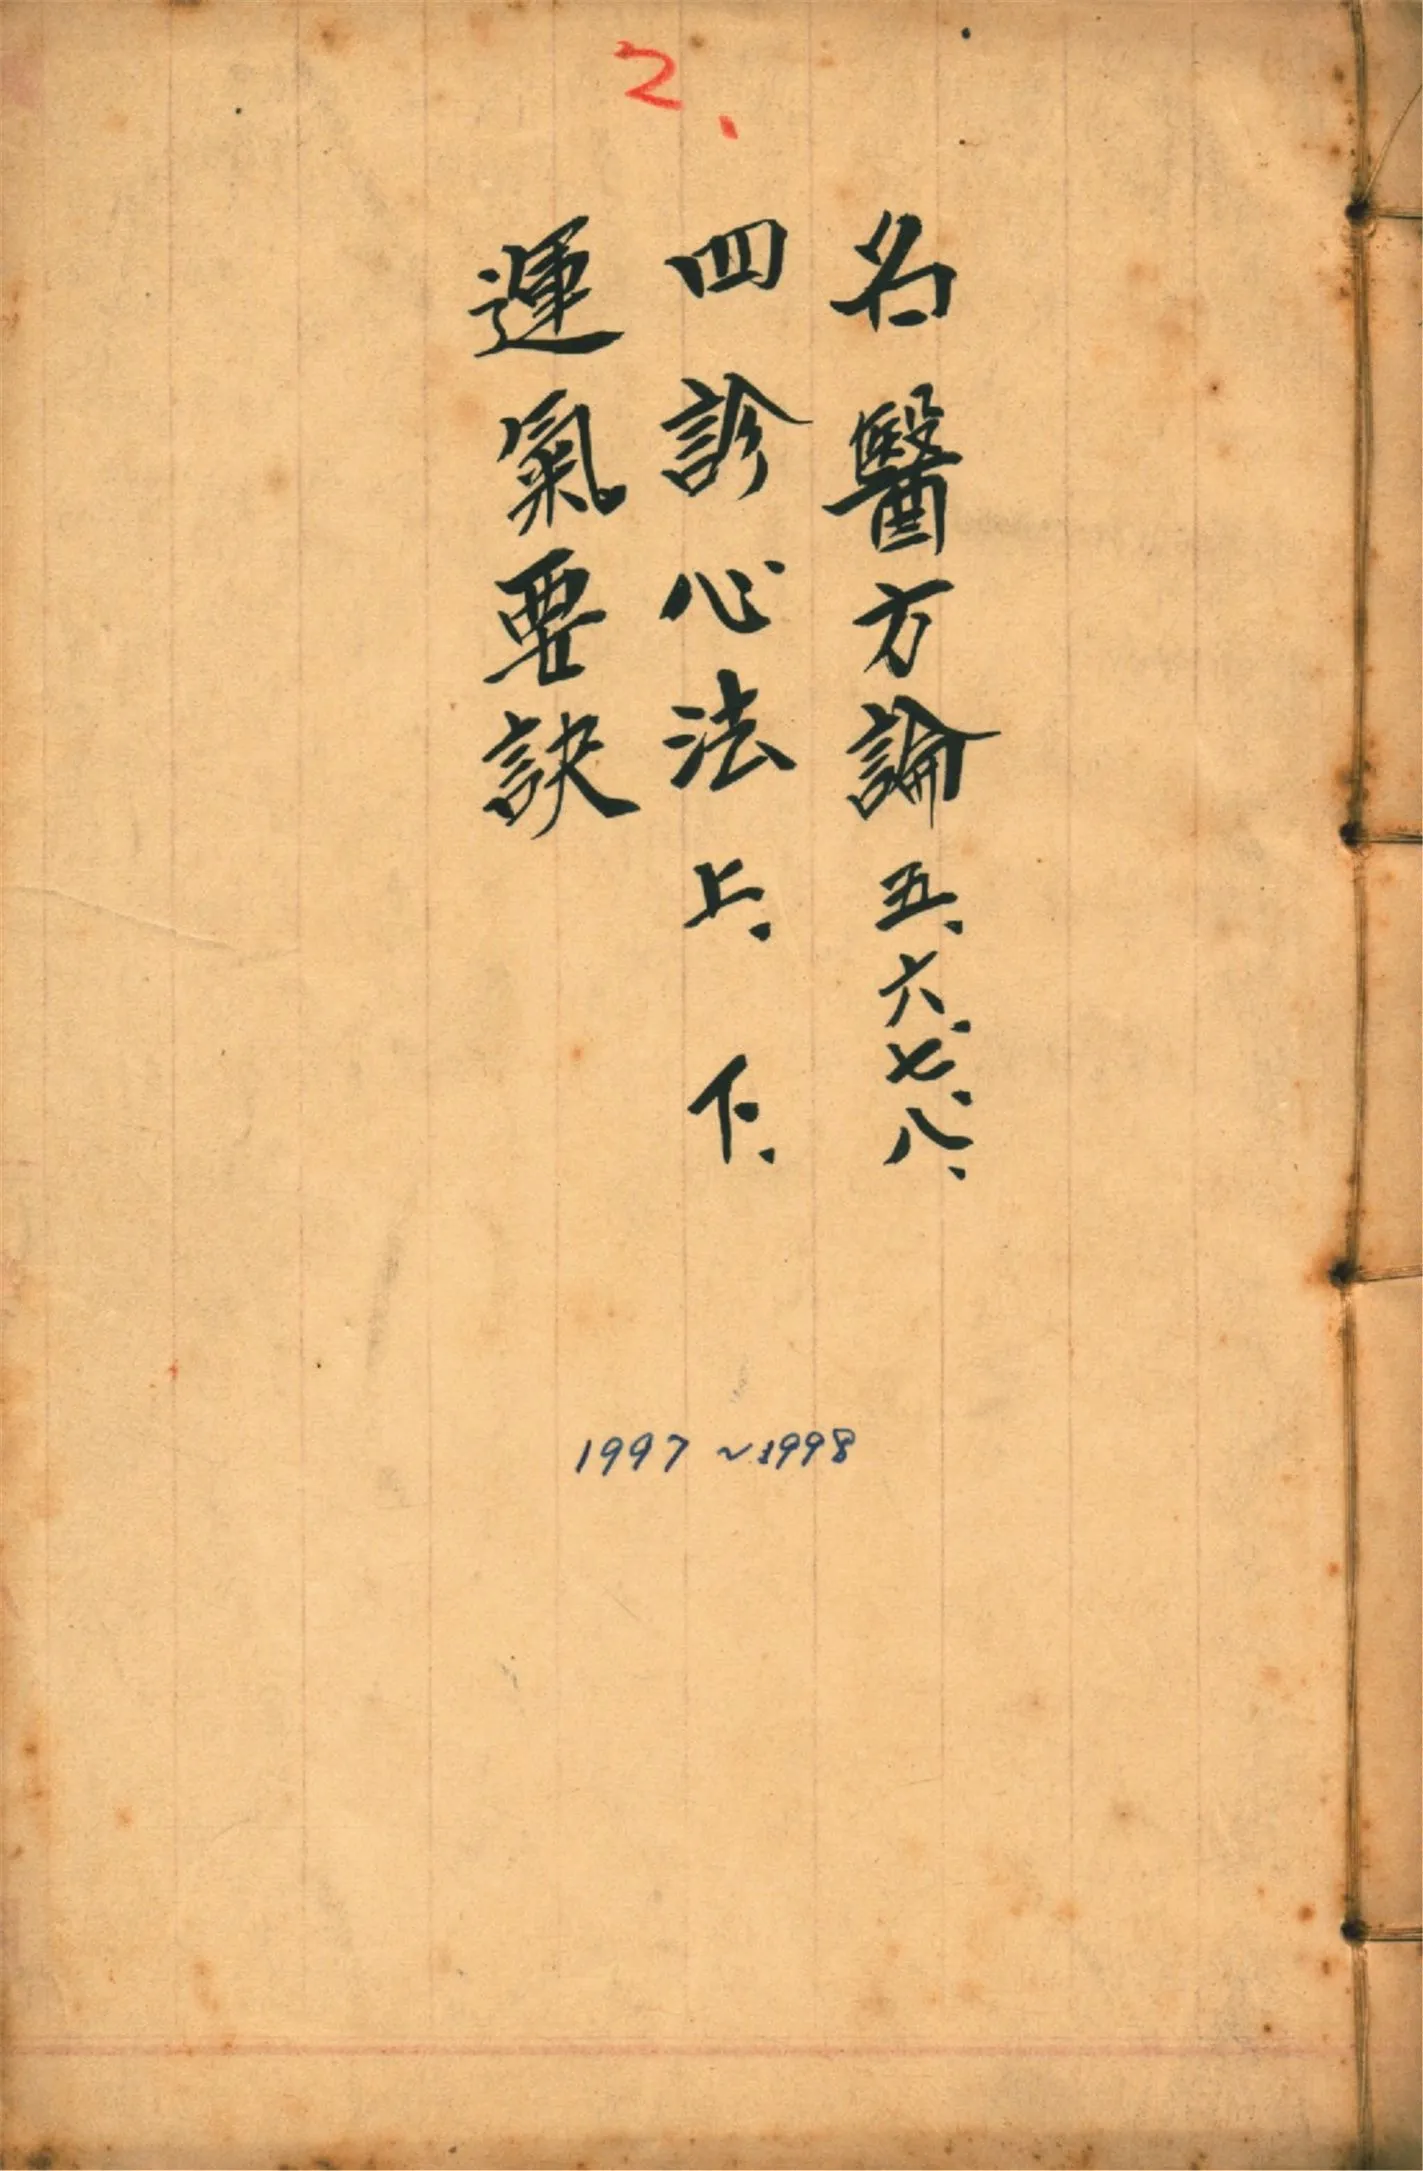 2、
名醫方論五、六、七、八、
四診心法上、下、
運氣要訣
1997~1998